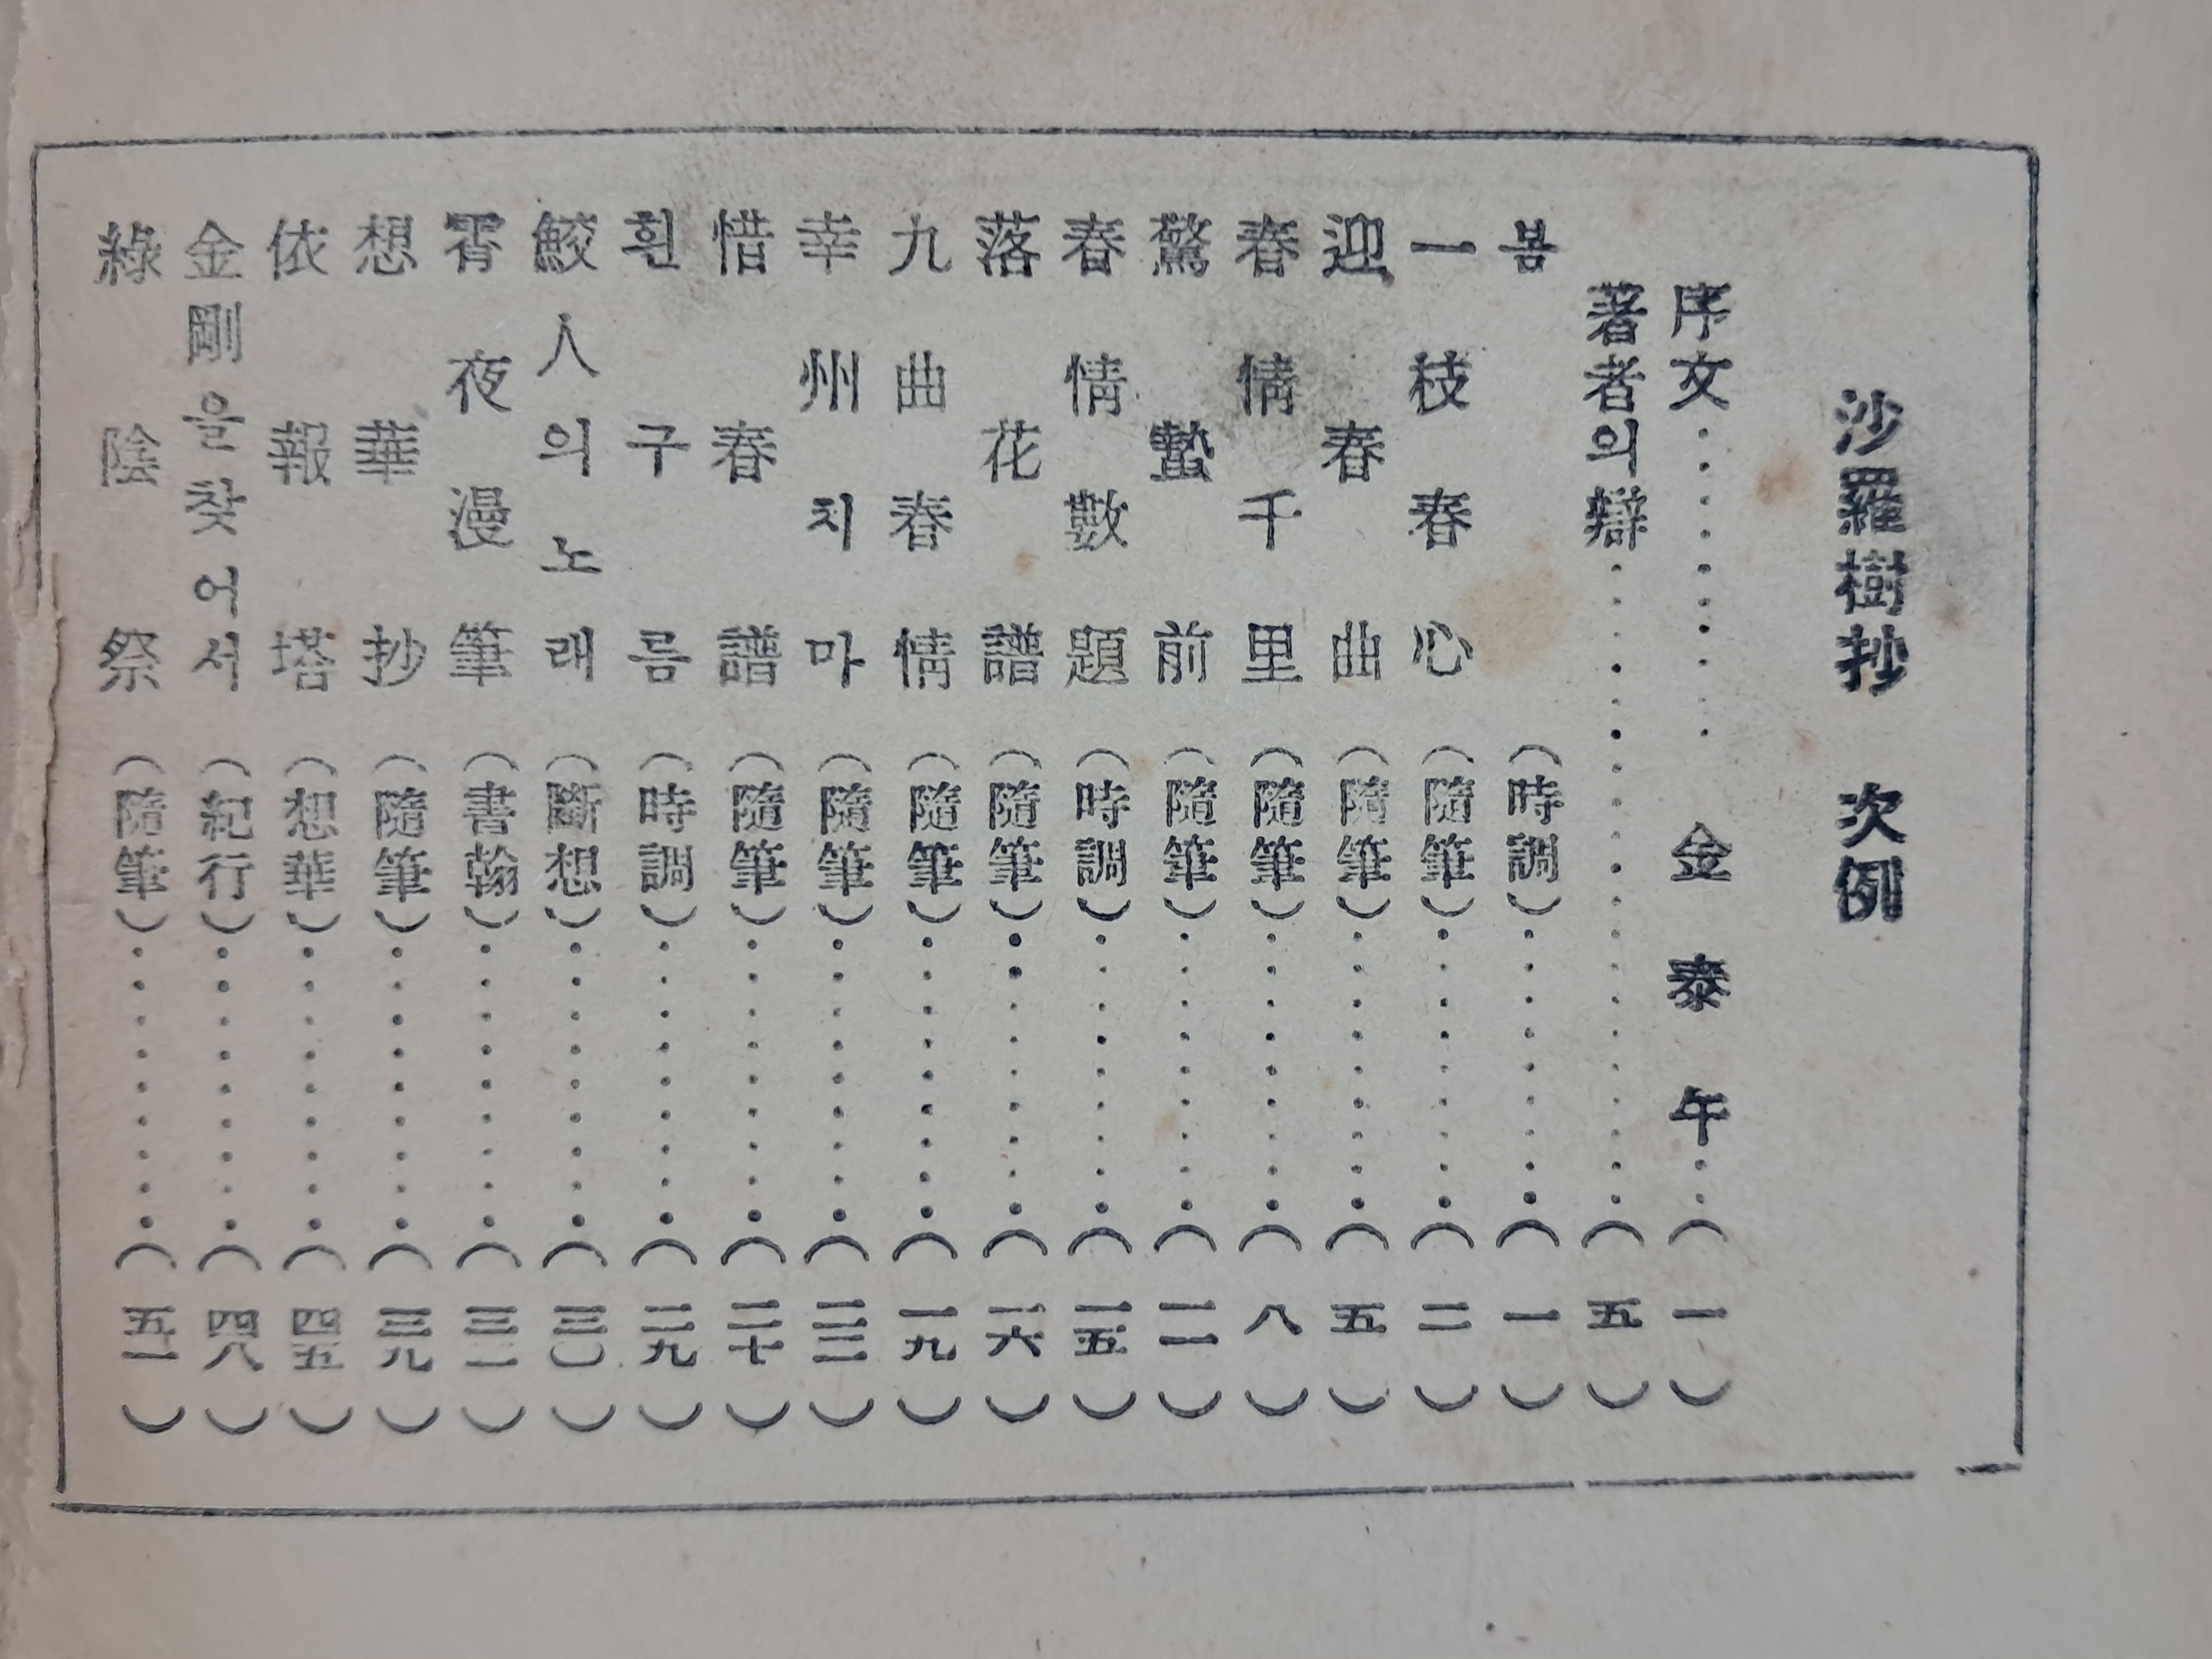 沙羅樹抄 次例
序文…………金泰午…(一)
著者의辯…………………(五)
봄(時調)…………(一)
一枝春心(隨筆)…………(二)
迎春曲(隨筆)…………(五)
春情千里(隨筆)…………(八)
驚蟄前(隨筆)…………(一一)
春情數題(時調)…………(一五)
落花譜(隨筆)…………(一六)
九曲春情(隨筆)…………(一九)
幸州치마(隨筆)…………(二三)
惜春譜(隨筆)…………(二七)
흰구름(時調)…………(二九)
鮫人의노래(斷想)…………(三〇)
霄夜漫筆(書翰)…………(三二)
想華抄(隨筆)…………(三九)
依報塔(想華)…………(四五)
金剛을찾어서(紀行)…………(四八)
綠陰祭(隨筆)…………(五一)